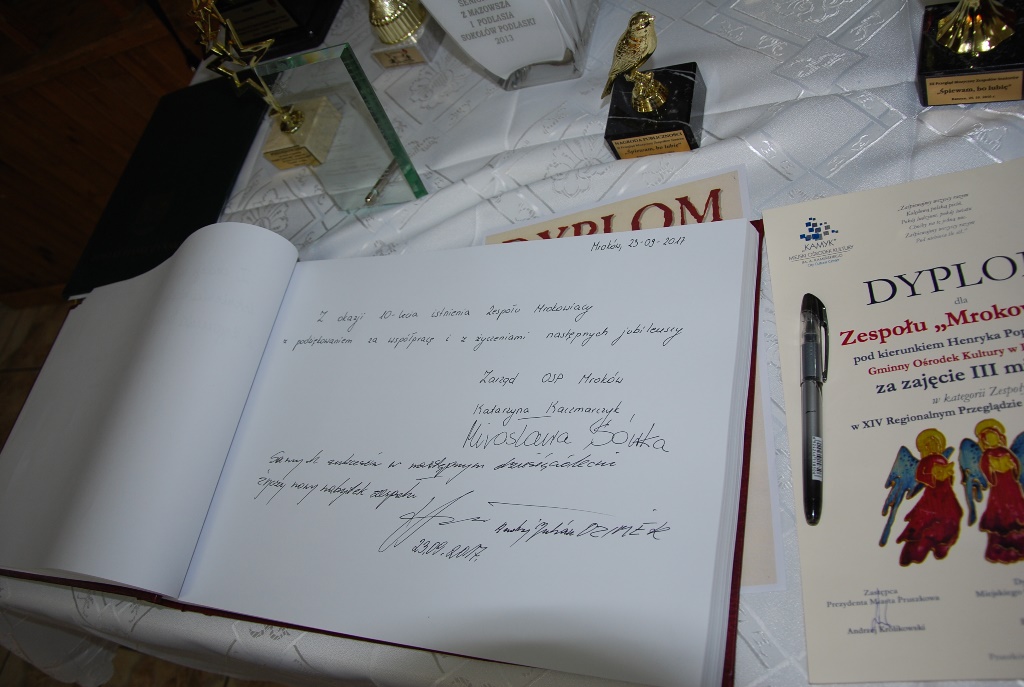 Z MAZOWSZA
I PODLASIA
SOKOŁÓW PODLASKI
2013
NAGRODA PUBLICZNOŚCI
"Śpiewam, bo lubię"
"Śpiewam, bo lubię"
DYPLOM
Mroków, 23-09-2017
Z okazji 10-lecia istnienia Zespołu Mrokowiacy
z podziękowaniem za współpracę i z życzeniami następnych jubileuszy
Zarząd OSP Mroków
Katarzyna Kaczmarczyk
Mirosława Sówka
Samych sukcesów w następnym dziesięcioleciu
życzy nowy nabytek zespołu
Andrzej Julian DZIMEK
23.09.2017.
"KAMYK"
MIEJSKI OŚRODEK KULTURY
DYPLO
dla
Zespołu „Mroko
pod kierunkiem Henryka Po
Gminny Ośrodek Kultury w
za zajęcie III mi
w kategorii Zespoł
w XIV Regionalnym Przeglądzie
Zastępca
Prezydenta Miasta Pruszkowa
Andrzej Królikowski
Miejskiego